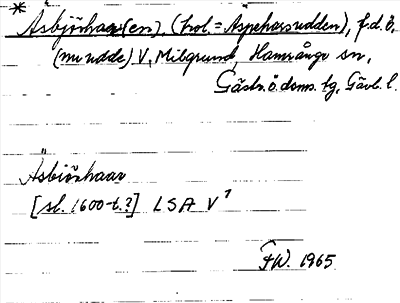 * Åsbjörhaar(en), (trol. = Aspeharsudden), f.d. ö,
(nu udde) V, Milgrund, Hamrånge sn,
Gästr. ö. doms. tg, Gävl. l.
Åsbiörhaar
[sl. 1600-t.?] LSA V 1
FW. 1965